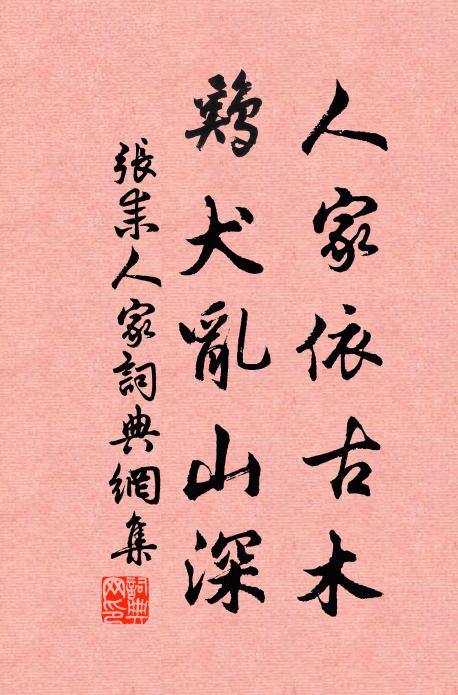 人家依古木
鷄犬亂山深
張耒人家詞典網集
詞典网印